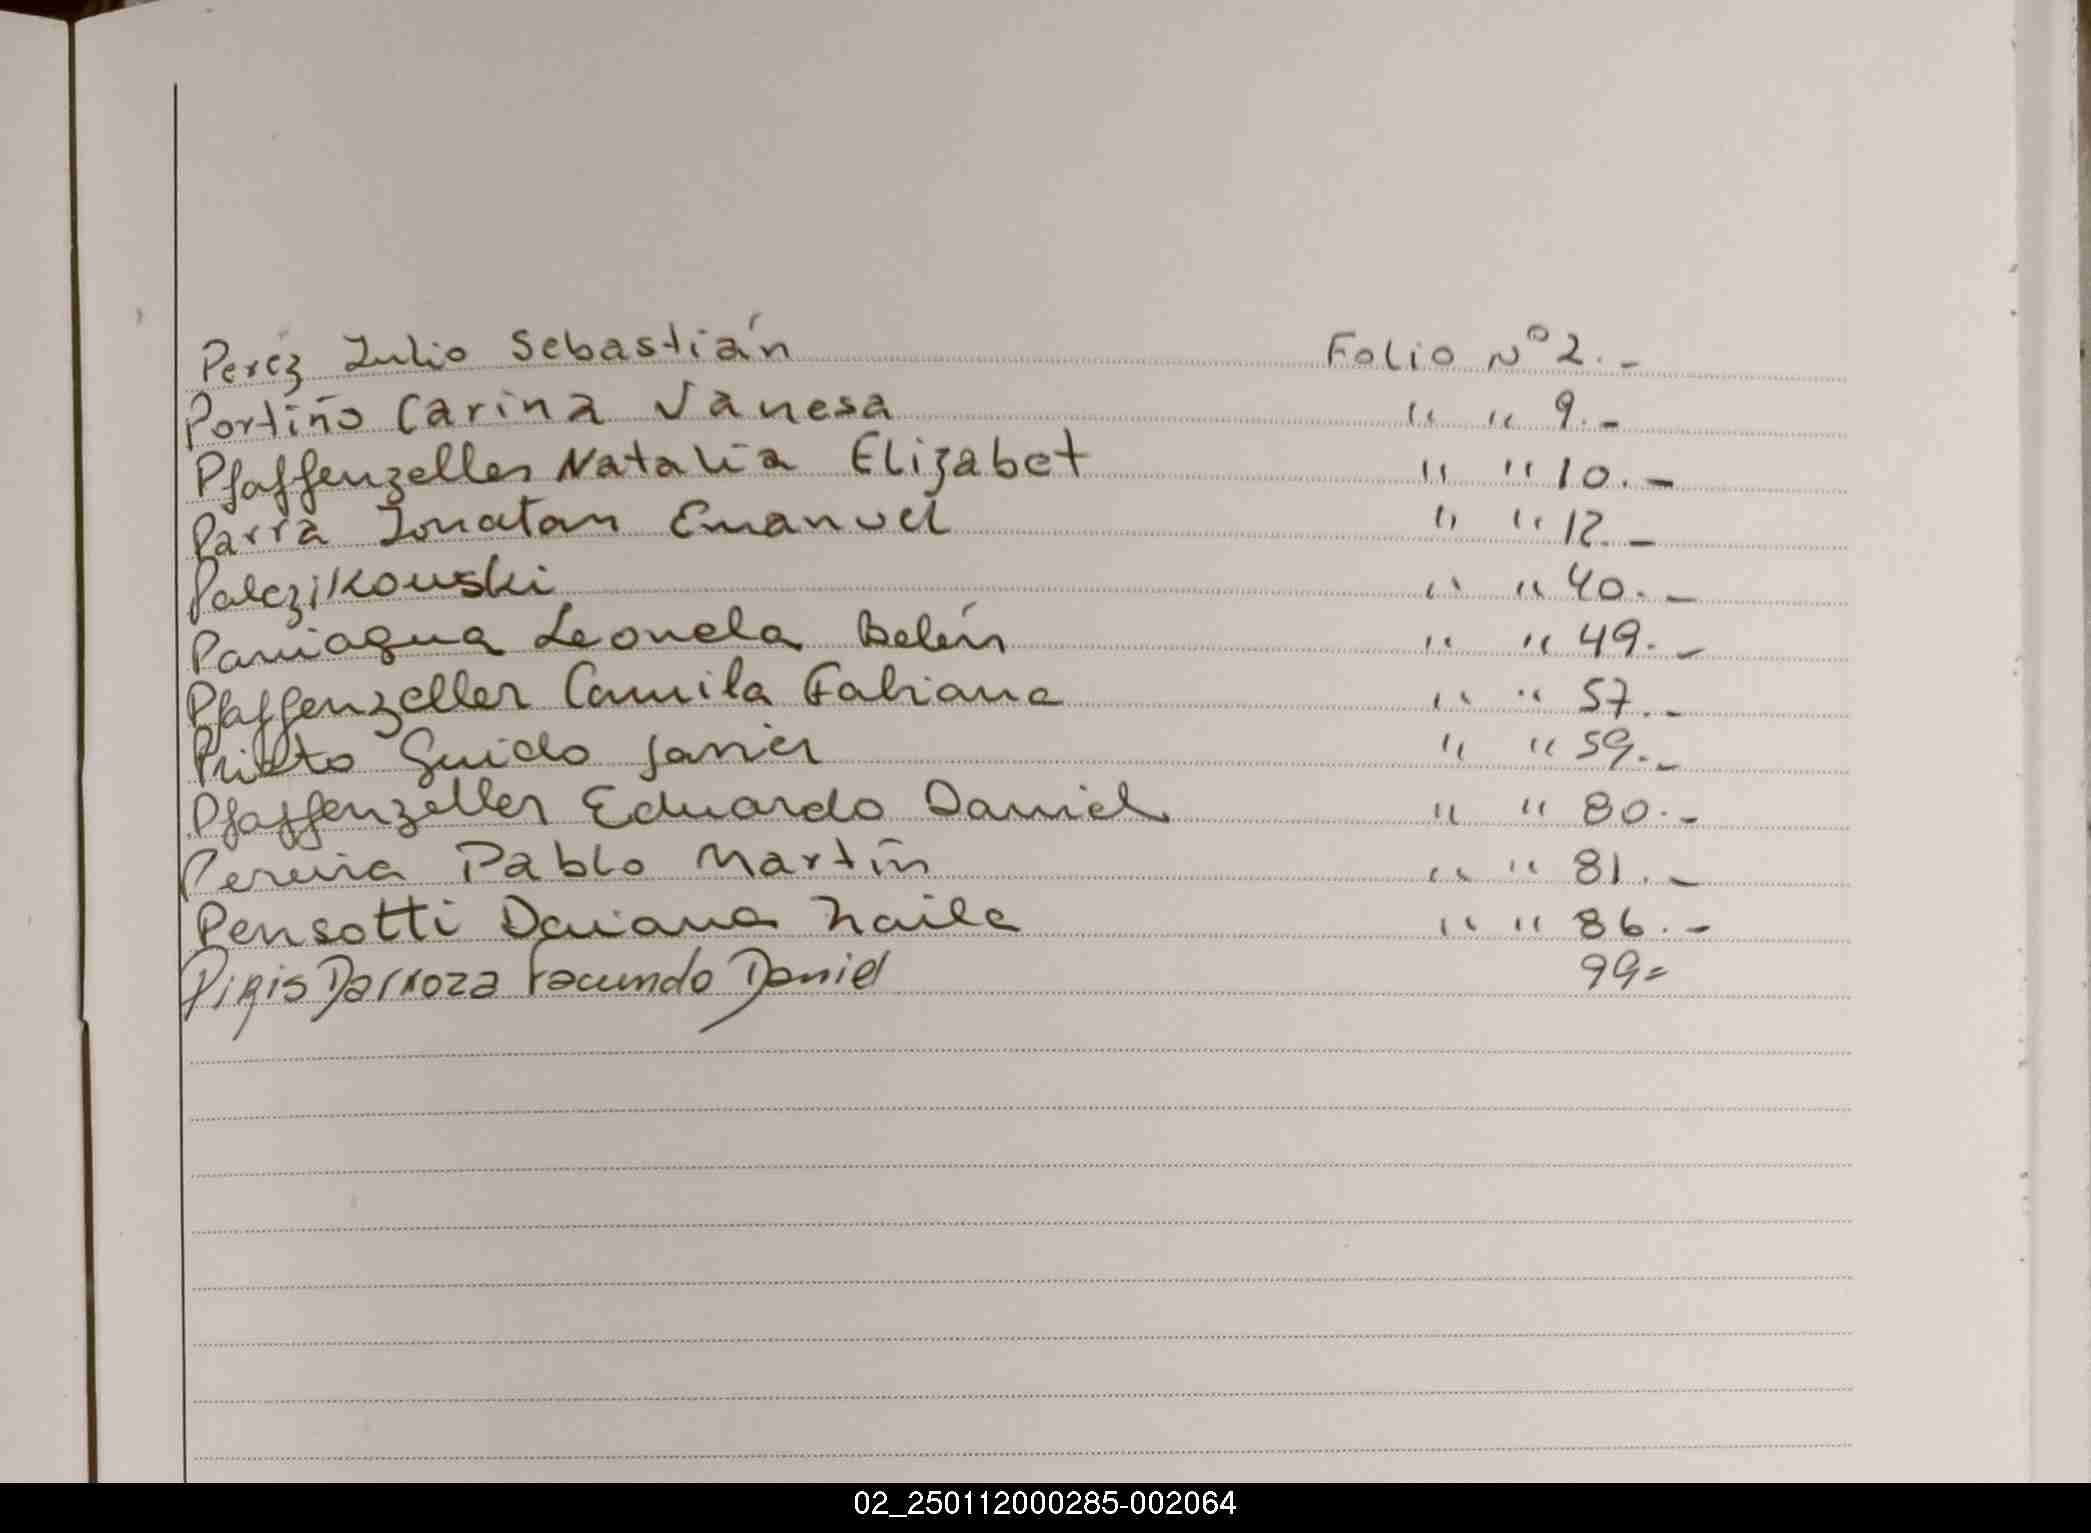 Perez Julio Sebastián Folio Nº 2.-
Portiño Carina Vanesa " " 9.-
Pfaffenzeller Natalia Elizabet " " 10.-
Parra Jonatan Emanuel " " 12.-
Palczikowski " " 40.-
Paniagua Leonela Belén " " 49.-
Pfaffenzeller Camila Fabiana " " 57.-
Prieto Guido Javier " " 59.-
Pfaffenzeller Eduardo Daniel " " 80.-
Pereira Pablo Martín " " 81.-
Pensotti Daiana Naila " " 86.-
Piris Darroza Facundo Daniel 99=
02_250112000285-002064